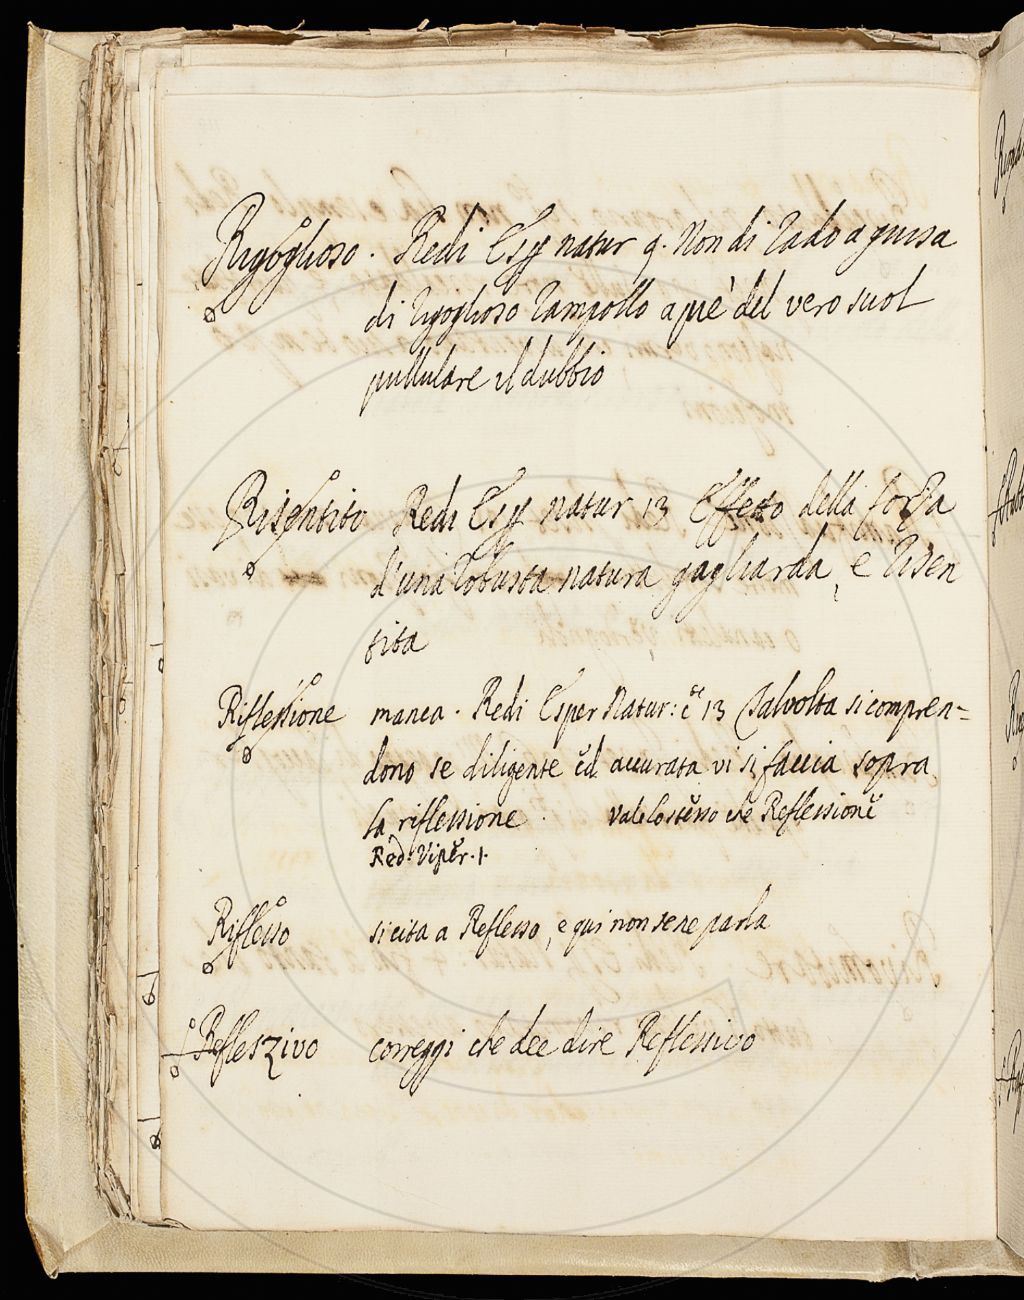 Rigoglioso. Redi Esp natur 9. Non di rado a guisa
di rigoglioso rampollo a piè del vero suol
pullulare il dubbio
Risentito Redi Esp natur 13 Effetto della forza
d'una robusta natura gagliarda, e risen
tita
Riflessione manca. Redi Esper Natur: è 13 Talvolta si compren=
dono se diligente ed accurata vi si faccia sopra
la riflessione. Vale lo stesso che Reflessione
Red. Viper. 1.
Riflesso si cita a Reflesso, e qui non se ne parla
Refleszivo correggi che dee dire Reflessivo